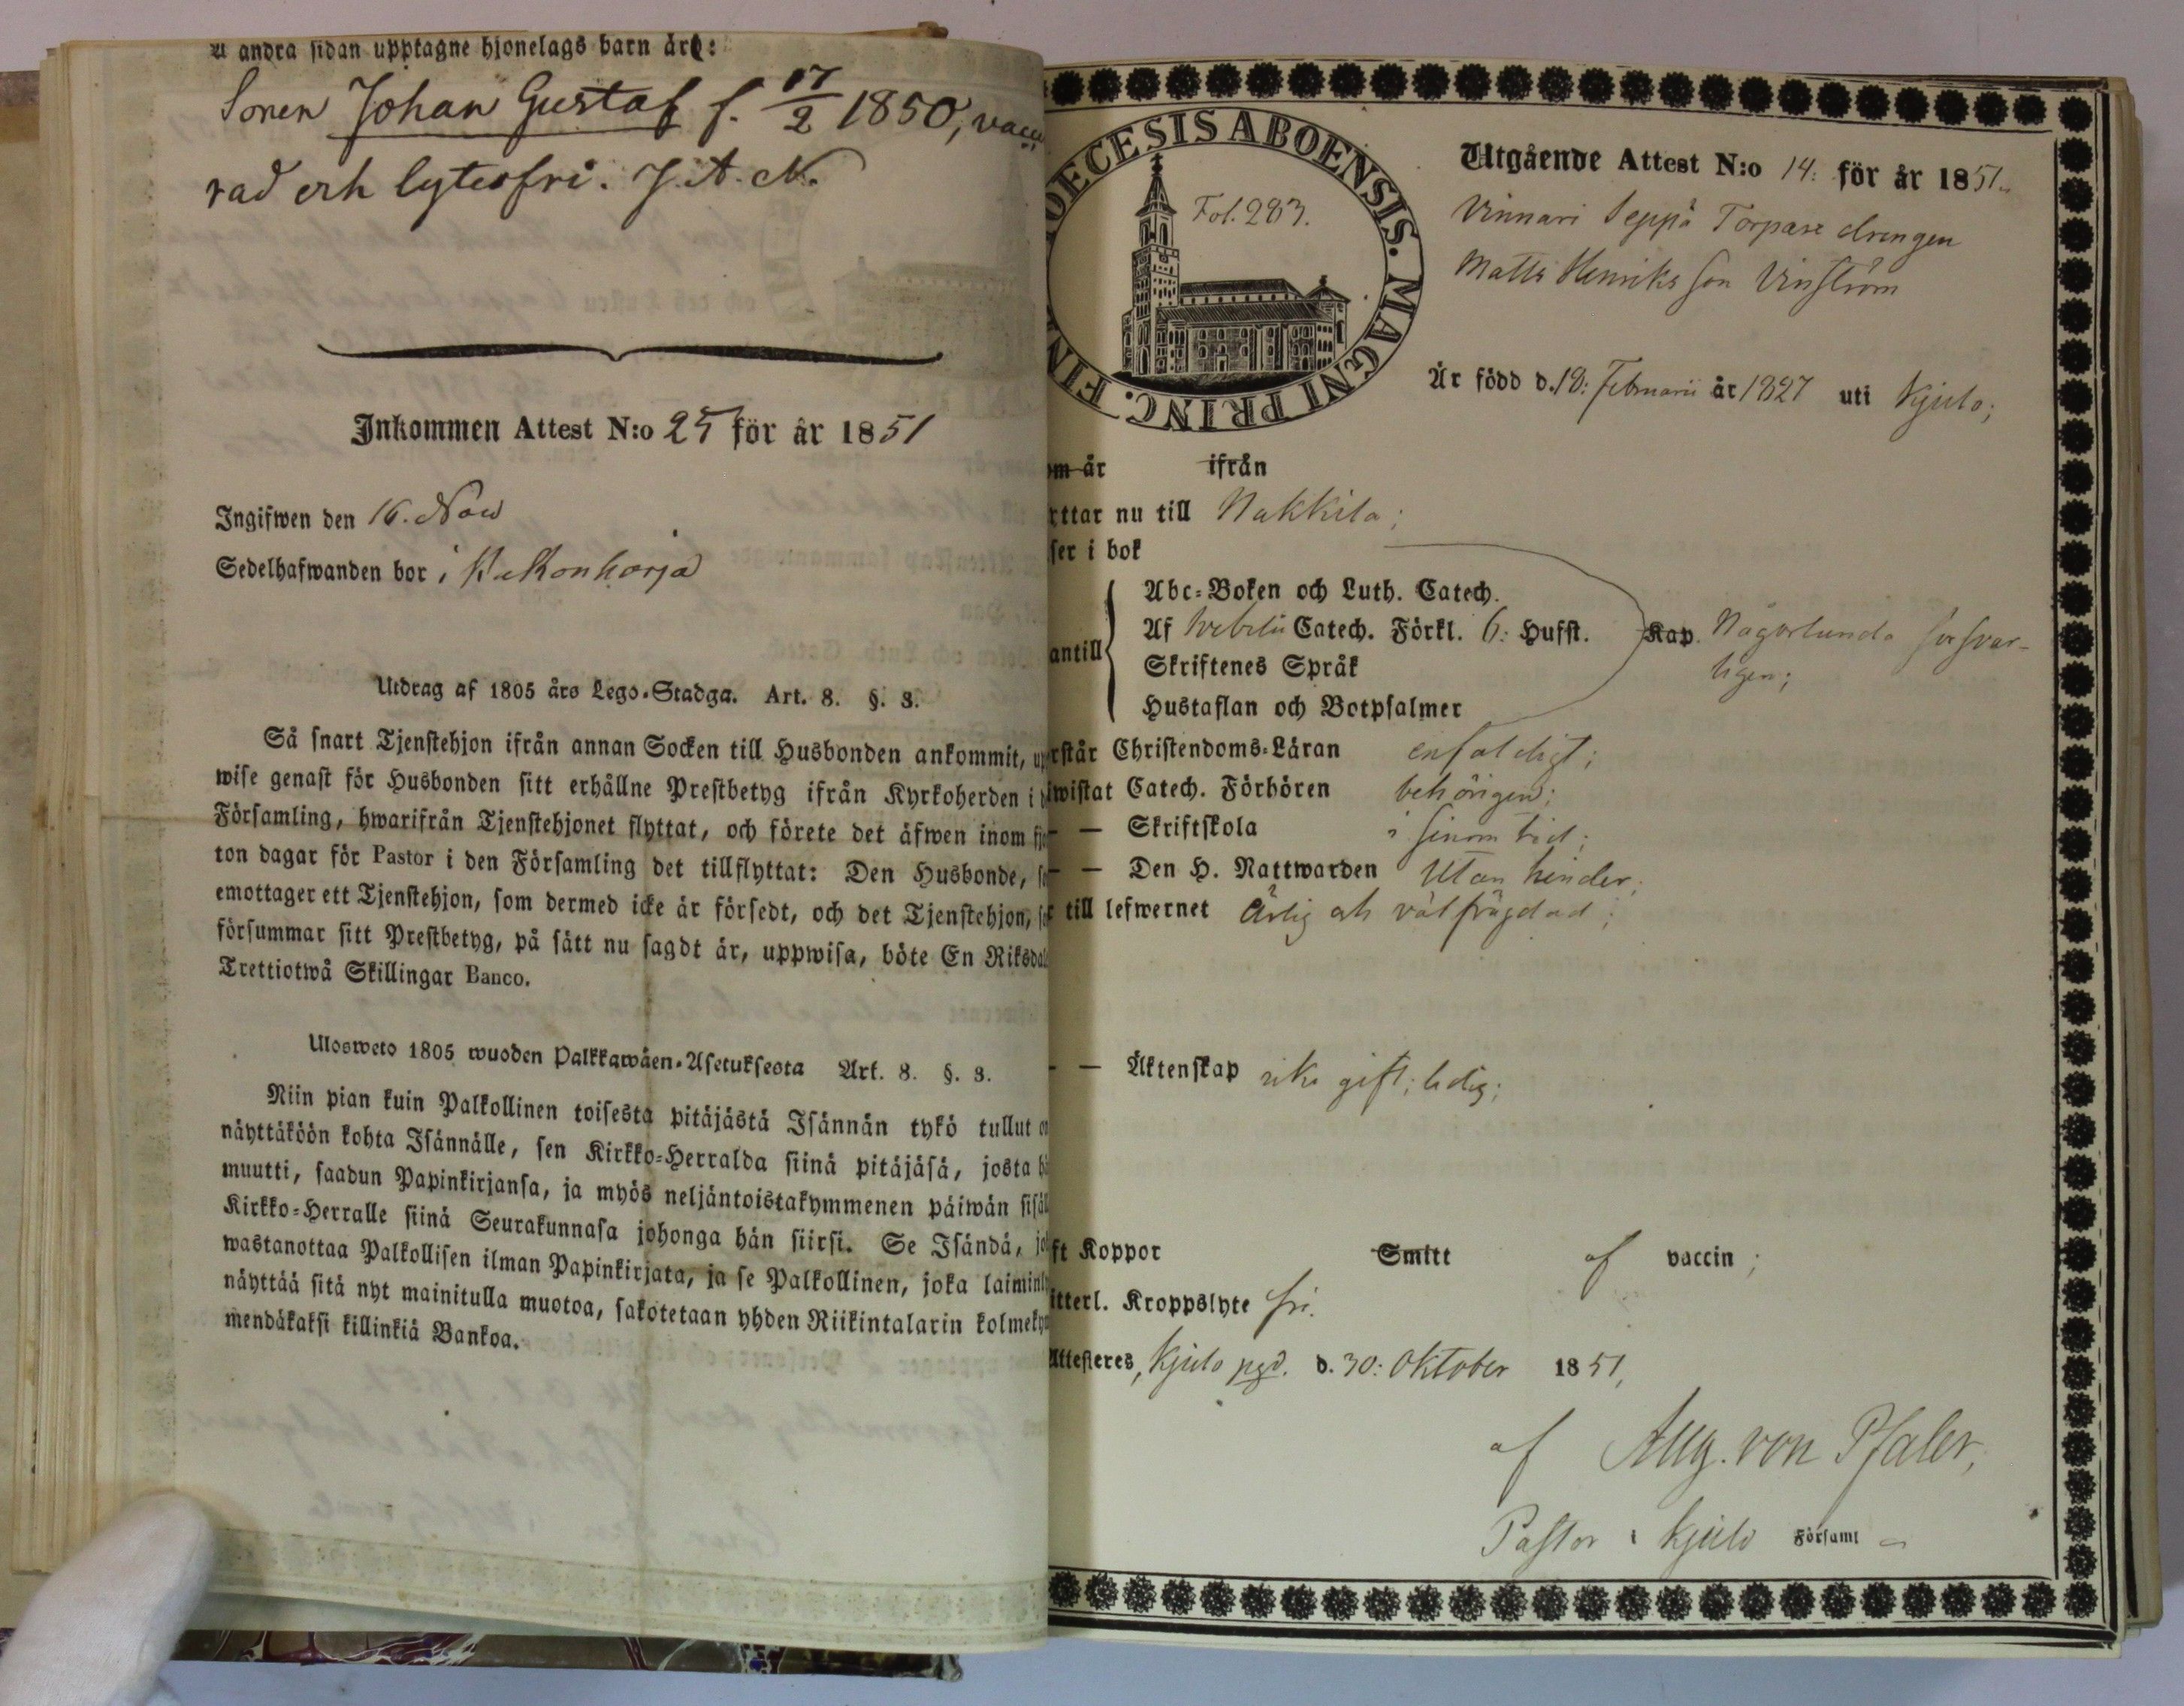 Å andra sidan upptagne hjonelags barn äro:
Sonen Johan Gustaf f. 17/2 1850, vacci
rad och lytesfri. J. A. N.
Inkommen Attest N:o 25 för år 1851
Ingifwen den 16. Nov
Sedelhafwanden bor i
Utdrag af 1805 års Lego-Stadga. Art. 8. §. 3.
Så snart Tjenstehjon ifrån annan Socken till Husbonden ankommit, up
wise genast för Husbonden sitt erhållne Prestbetyg ifrån Kyrkoherden i
Församling, hwarifrån Tjenstehjonet flyttat, och förete det äfwen inom fjo
ton dagar för Pastor i den Församling det tillflyttat: Den Husbonde, so
emottager ett Tjenstehjon, som dermed icke är försedt, och det Tjenstehjon, so
försummar sitt Prestbetyg, på sätt nu sagdt är, uppwisa, böte En Riksdal
Trettiotwå Skillingar Banco.
Ulosweto 1805 wuoden Palkkawäen-Asetuksesta Art. 8. §. 3.
Niin pian kuin Palkollinen toisesta pitäjästä Isännän tykö tullut on
näyttäköön kohta Isännälle, sen Kirkko-Herralda siinä pitäjäsä, josta hä
muutti, saadun Papinkirjansa, ja myös neljäntoistakymmenen päiwän sisäl
Kirkko-Herralle siinä Seurakunnasa johonga hän siirsi. Se Isändä, jo
wastanottaa Palkollisen ilman Papinkirjata, ja se Palkollinen, joka laiminly
näyttää sitä nyt mainitulla muotoa, sakotetaan yhden Riikintalarin kolmeky
mendäkaksi killinkiä Bankoa.
DIOECESIS ABOENSIS. MAGNI PRINC. FIN
Fol. 283.
Utgående Attest N:o 14: för år 1851.
Vinnari Seppä Torpare drengen
Matts Henriksson Vinström
Är född d. 18: Februarii år 1827 uti Kjulo;
om är ifrån
yttar nu till Nakkila;
ser i bok
antill
Abc-Boken och Luth. Catech.
Af Svebelii Catech. Förkl. 6: Hufst. Kap. Någorlunda försvar-
ligen;
Skriftenes Språk
Hustaflan och Botpsalmer
rstår Christendoms-Läran enfaldigt;
iwistat Catech. Förhören behörigen;
— — Skriftskola i sinom tid;
— — Den H. Nattwarden Utan hinder;
r till lefwernet Ärlig och välfrägdad;
— — Äktenskap icke gift; ledig;
ft Koppor Smitt af vaccin;
itterl. Kroppslyte fri.
Attesteres, Kjulo pgd. d. 30: Oktober 1851,
af Aug. von Pfaler,
Pastor i Kjulo Församl